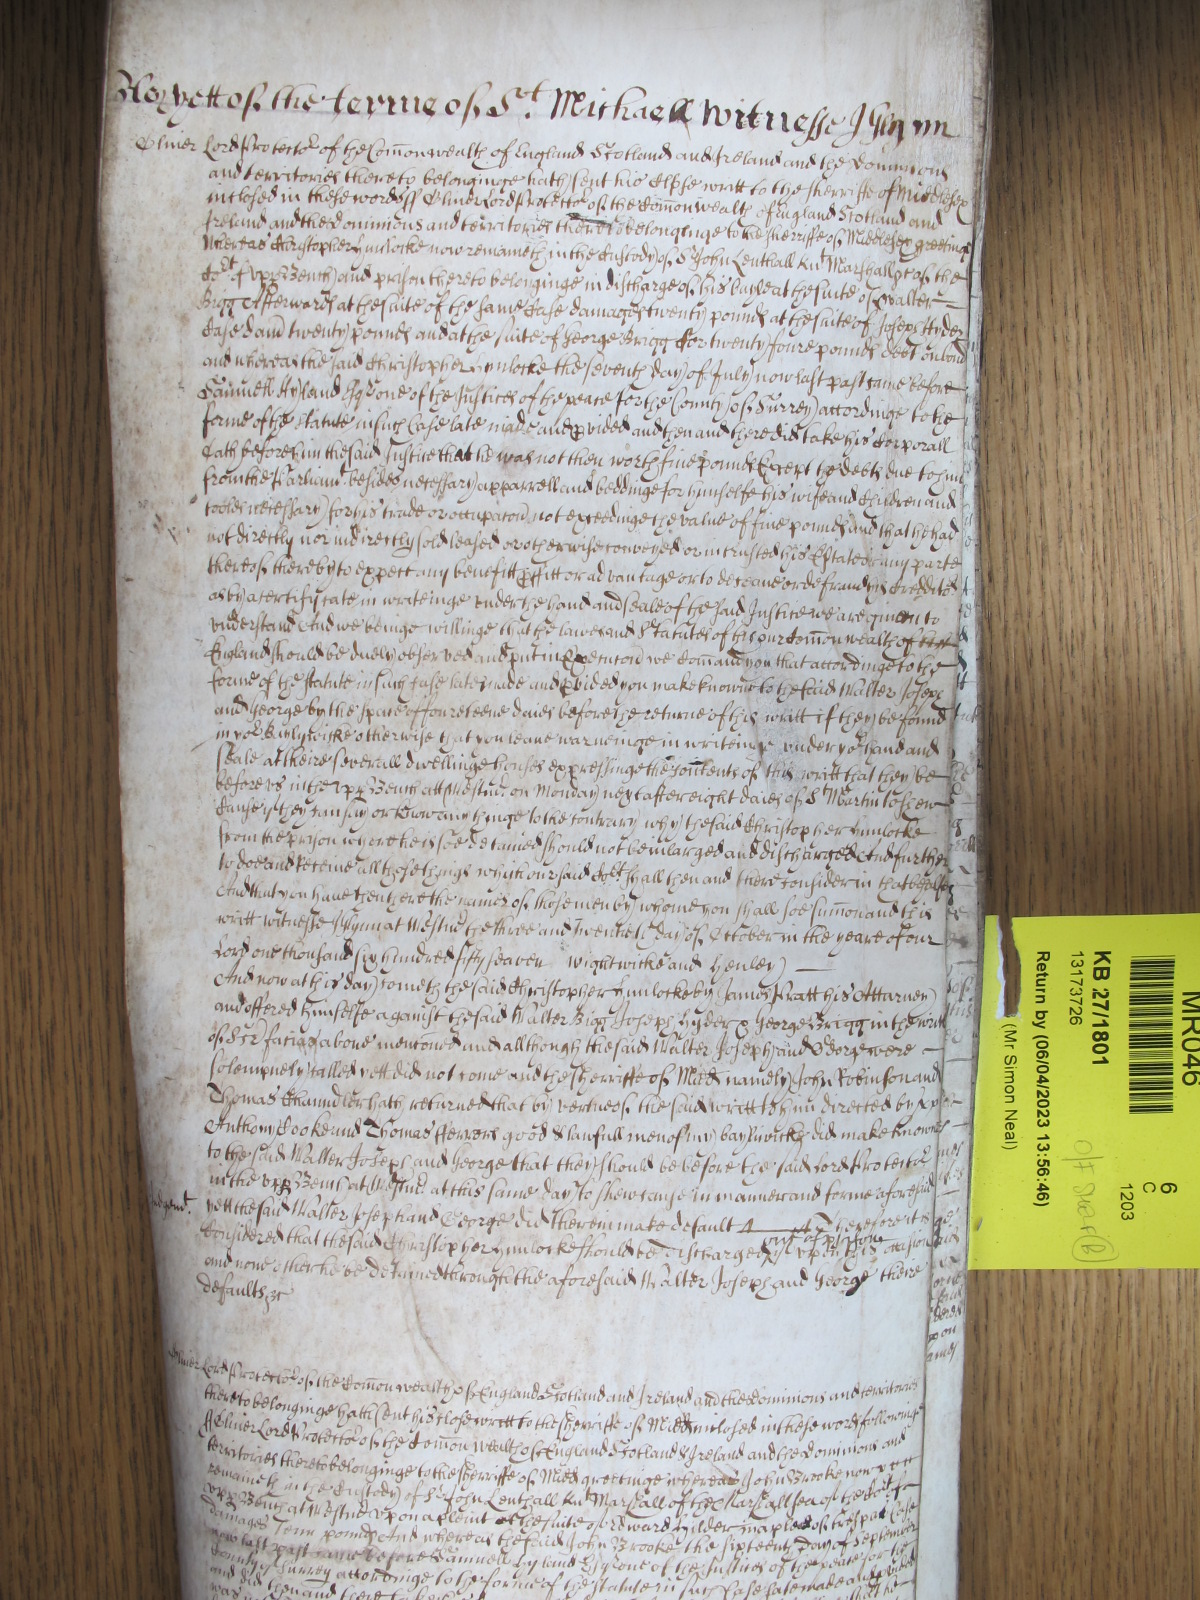 As yett of the terme of St. Michaell Witnesse J Glynn
Oliver Lord Protector of the Comonwealth of England Scotland and Ireland and the Dominions
and territories thereto belonginge hath sent his Close writt to the Sherriffe of Middlesex
inclosed in these words ss Oliver Lord Protector of the Comonwealth of England Scotland and
Ireland and the Dominions and territories thereto belonginge to the Sherriffe of Middlesex greetinge
Whereas Christopher Hymlocke now remaineth in the Custody of Sr John Lenthall Knt Marshall of the
Cort of upper Bench and prison thereto belonginge in discharge of his bayle at the suite of Walter
Bigg Afterwards at the suite of the same Case damages twenty pounds at the suite of Joseph Hyder
Case dam twenty pounds and at the suite of George Brigg for twenty foure pounds debt on bond
and whereas the said Christopher Hymlocke the seventh day of July now last past came before
Samuell Hyland Esqr one of the Justices of the peace for the County of Surrey accordinge to the
forme of the Statute in such Case late made and pvided and then and there did take his Corporall
Oath before him the said Justice that he was not then worth five pounds Except the debts due to him
from the Parliamt. besides necessary apparrell and beddinge for himselfe his wife and Children and
tooles necessary for his trade or occupacon not exceedinge the value of five pounds and that he had
not directly nor indirectly sold leased or otherwise conveyed or intrusted his Estate or any parte
thereof thereby to expect any benefitt pffitt or advantage or to deceave or defraud his Creditors
as by a certifycate in writeinge under the hand and seale of the said Justice we are given to
understand And we beinge willinge that the lawes and Statutes of his our Comonwealth of
England should be duely observed and put in Execucon we Comand you that accordinge to the
forme of the Statute in such Case late made and pvided you make knowne to the said Walter Joseph
and George by the space of foureteene daies before the returne of this writt if they be found
in yor Baylywicke otherwise that you leave warneinge in writeinge under yor hand and
seale at theire severall dwellinge houses expressinge the Contents of this writt that they be
before us in the uppr Bench att Westmr on Monday next after eight daies of St Martin to shew
Cause if they can say or know any thinge to the contrary why the said Christopher Hymlocke
from the prison where he is soe detained should not be inlarged and discharged And further
to doe and receive all those things which our said Cort shall then and there consider in that behalfe
And that you have then there the names of those men by whome you shall soe summon and this
writt witnesse J Glynn at Westmr the three and twentieth day of October in the yeare of our
Lord one thousand six hundred fifty seaven Wightwicke and Henley
And now at this day cometh the said Christopher Hymlocke by James Pratt his Attorney
and offered himselfe against the said Walter Bigg Joseph Hyder & George Brigg in the writt
of Scr facias above mentioned and allthough the said Walter Joseph and George were
solempnely called yett did not come and the Sherriffe of Midd namely John Robinson and
Thomas Chaundler hath returned that by vertue of the said writt to him directed by
Anthony Cooke and Thomas fferrers good & lawfull men of my baylywicke did make knowne
to the said Walter Joseph and George that they should be before the said Lord Protector
in the uppr Bench at Westmr at this same day to shew cause in manner and forme aforesaid
Judgemt.
yett the said Walter Joseph and George did therein make default Therefore it is
Considered that the said Christopher Hymlocke should be discharged out of prison upon this occasion
and none other he be detained through the aforesaid Walter Joseph and George theire
defaults &c
Oliver Lord Protector of the Comonwealth of England Scotland and Ireland and the Dominions and territories
thereto belonginge hath sent his close writt to the Sherriffe of Midd inclosed in these words followinge
ss Oliver Lord Protector of the Comon wealth of England Scotland & Ireland and the Dominions and
territories thereto belonginge to the Sherriffe of Midd greetinge whereas John Brooke now
remaineth in the Custody of Sr John Lenthall Knt Marshall of the Marshallsea of the Cort of
uppr Bench at Westmr upon a pleint at the suite of Edward Hilder in a plea of trespas Case
damages Tenn pounds And whereas the said John Brooke the sixteenth day of September
now last past came before Samuell Hyland Esqr one of the Justices of the peace for the
County of Surrey accordinge to the forme of the Statute in such Case late made and pvided
and did then and there
MR046
6
C
1203
KB 27/1801
13173726
Return by (06/04/2023 13:56:46)
(Mr Simon Neal)